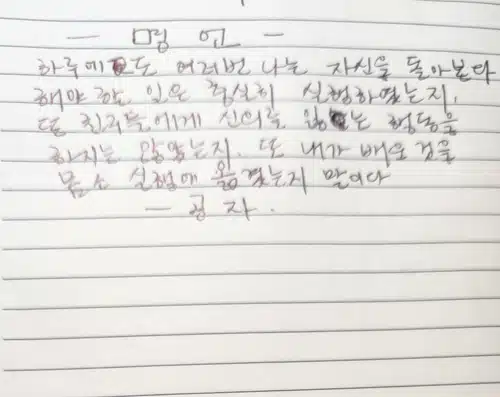 — 명언 —
하루에도 여러번 나는 자신을 돌아본다
해야 할 일은 충실히 실행하였는지,
또 친구들에게 신의를 잃는 행동을
하지는 않았는지. 또 내가 배운 것을
몸소 실행에 옮겼는지 말이다
— 공자.